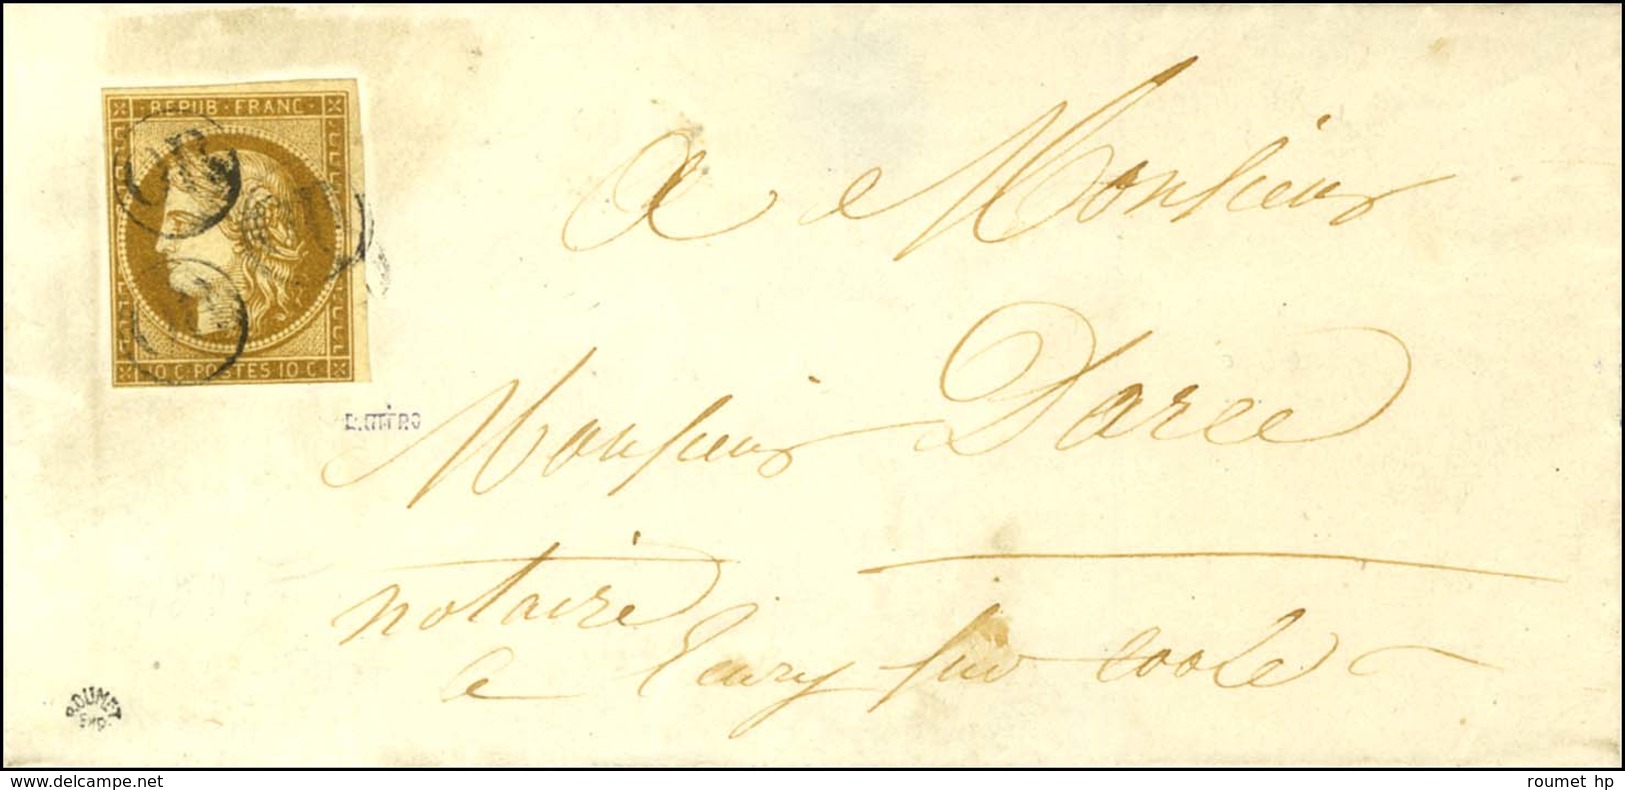 REPUB · FRANC ·
10 C · POSTES 10 C ·
a Monsieur
Monsieur Daree
notaire
a Ecury sur coole
ROUMET
Exp.
www.delcampe.net
roumet hp